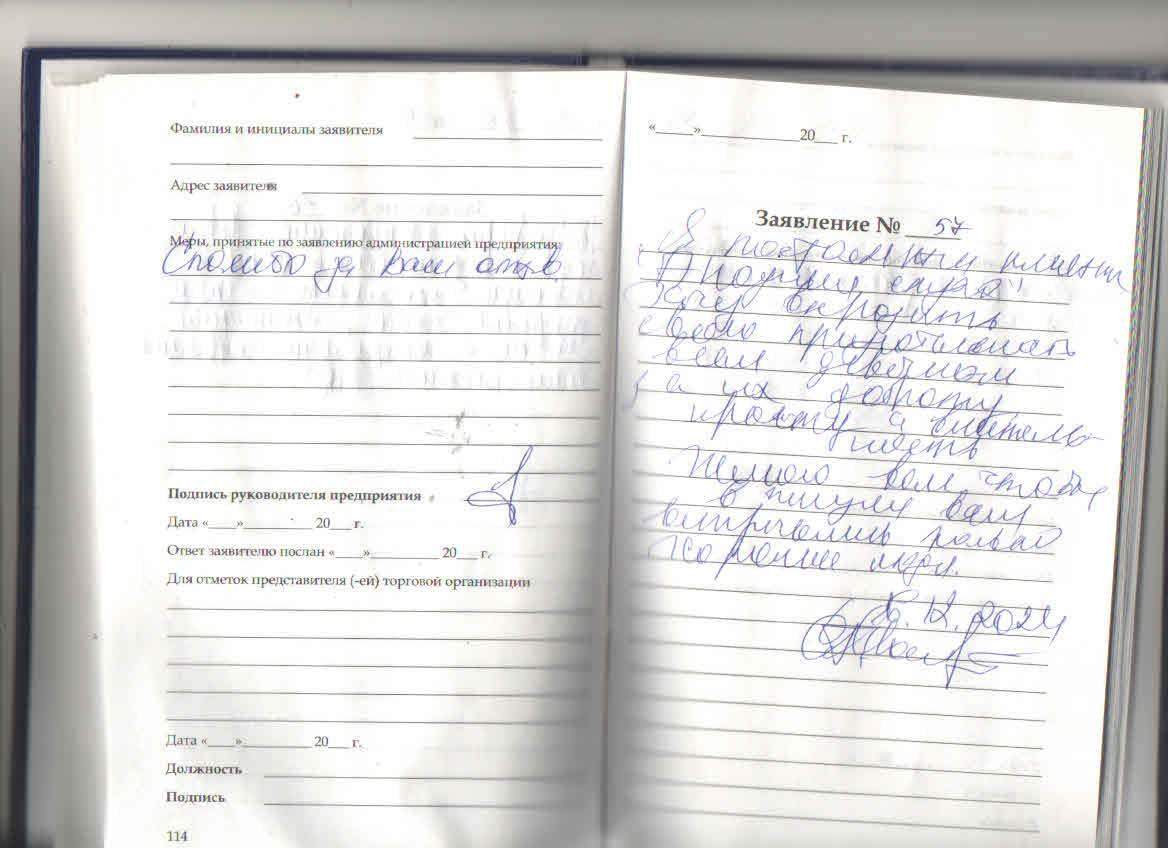 Фамилия и инициалы заявителя
Адрес заявителя
Меры, принятые по заявлению администрацией предприятия:
Спасибо за ваш отзыв.
Подпись руководителя предприятия
Дата «____»__________ 20___ г.
Ответ заявителю послан «____»__________ 20___ г.
Для отметок представителя (-ей) торговой организации
Дата «____»__________ 20___ г.
Должность
Подпись
114
«_____»______________20___ г.
Заявление № 57
Я постоянный клиент
Хочу выразить
всем девочкам
за их доброту
Желаю вам чтобы
встречались только
хорошие люди.
12.2024